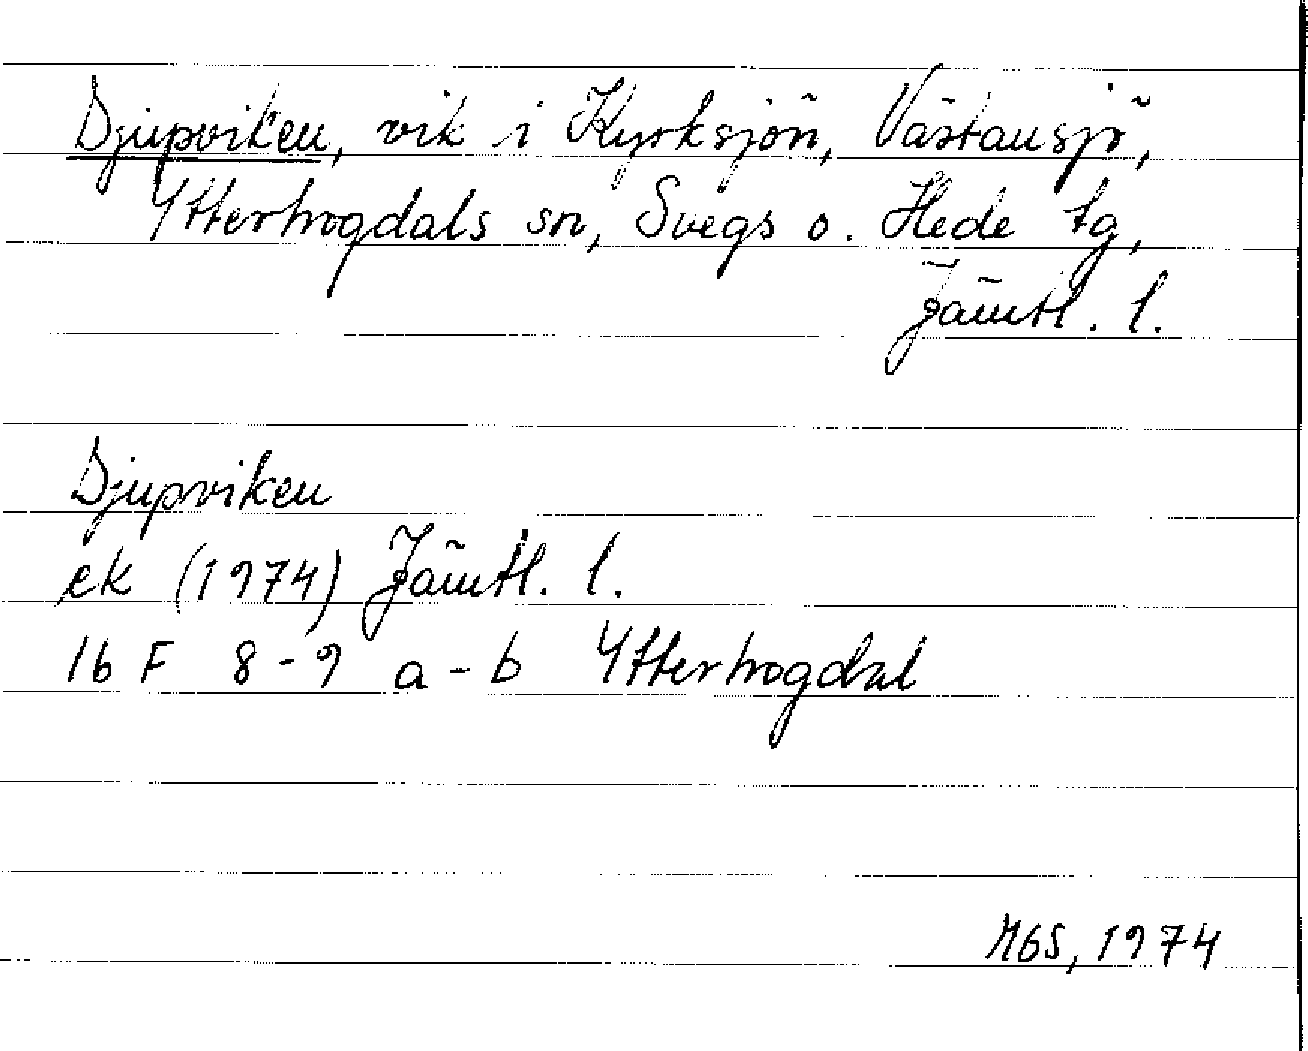 Djupviken, vik i Kyrksjön, Västansjö,
Ytterhogdals sn, Svegs o. Hede tg,
Jämtl. l.
Djupviken
ek (1974) Jämtl. l.
16 F 8-9 a-b Ytterhogdal
MGS, 1974